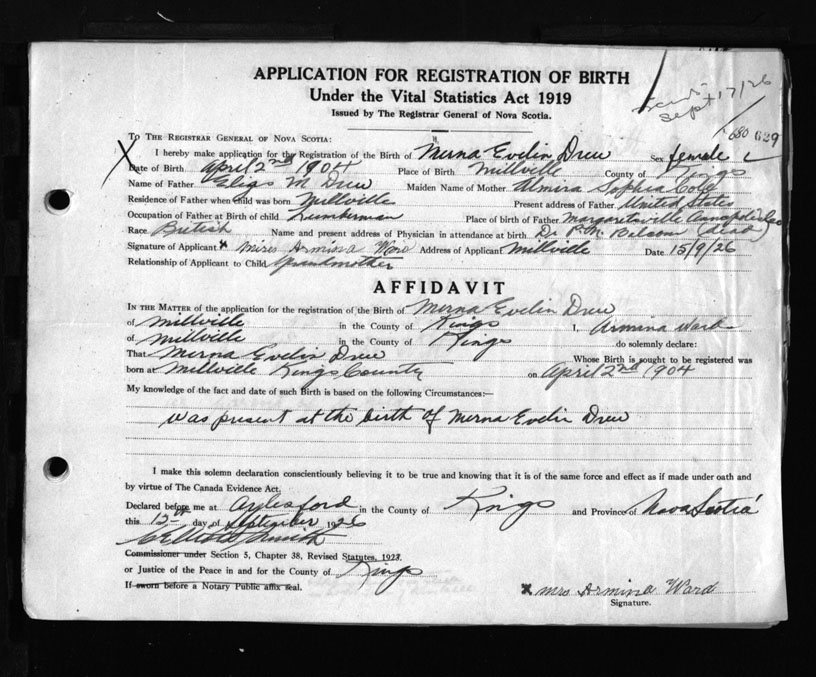 APPLICATION FOR REGISTRATION OF BIRTH
Under the Vital Statistics Act 1919
Issued by The Registrar General of Nova Scotia.
Sept 17/26
680 629
TO THE REGISTRAR GENERAL OF NOVA SCOTIA:
I hereby make application for the Registration of the Birth of Merna Evelin Drew Sex female
Date of Birth April 2nd 1904 Place of Birth Millville County of Kings
Name of Father Elias M Drew Maiden Name of Mother Almira Sophia Cole
Residence of Father when Child was born Millville Present address of Father United States
Occupation of Father at Birth of child Lumberman Place of birth of Father Margaretsville Annapolis Co
Race British Name and present address of Physician in attendance at birth Dr P.M. (dead)
Signature of Applicant x Mrs Armina Ward Address of Applicant Millville Date 15/9/26
Relationship of Applicant to Child Grandmother
AFFIDAVIT
IN THE MATTER of the application for the registration of the Birth of Merna Evelin Drew
of Millville in the County of Kings I, Armina Ward
of Millville in the County of Kings do solemnly declare:
That Merna Evelin Drew Whose Birth is sought to be registered was
born at Millville Kings County on April 2nd 1904
My knowledge of the fact and date of such Birth is based on the following Circumstances:—
was present at the birth of Merna Evelin Drew
I make this solemn declaration conscientiously believing it to be true and knowing that it is of the same force and effect as if made under oath and
by virtue of The Canada Evidence Act.
Declared before me at Aylesford in the County of Kings and Province of Nova Scotia
this 15th day of September 1926
Commissioner under Section 5, Chapter 38, Revised Statutes, 1923.
or Justice of the Peace in and for the County of Kings
If sworn before a Notary Public affix seal.
x Mrs Armina Ward
Signature.